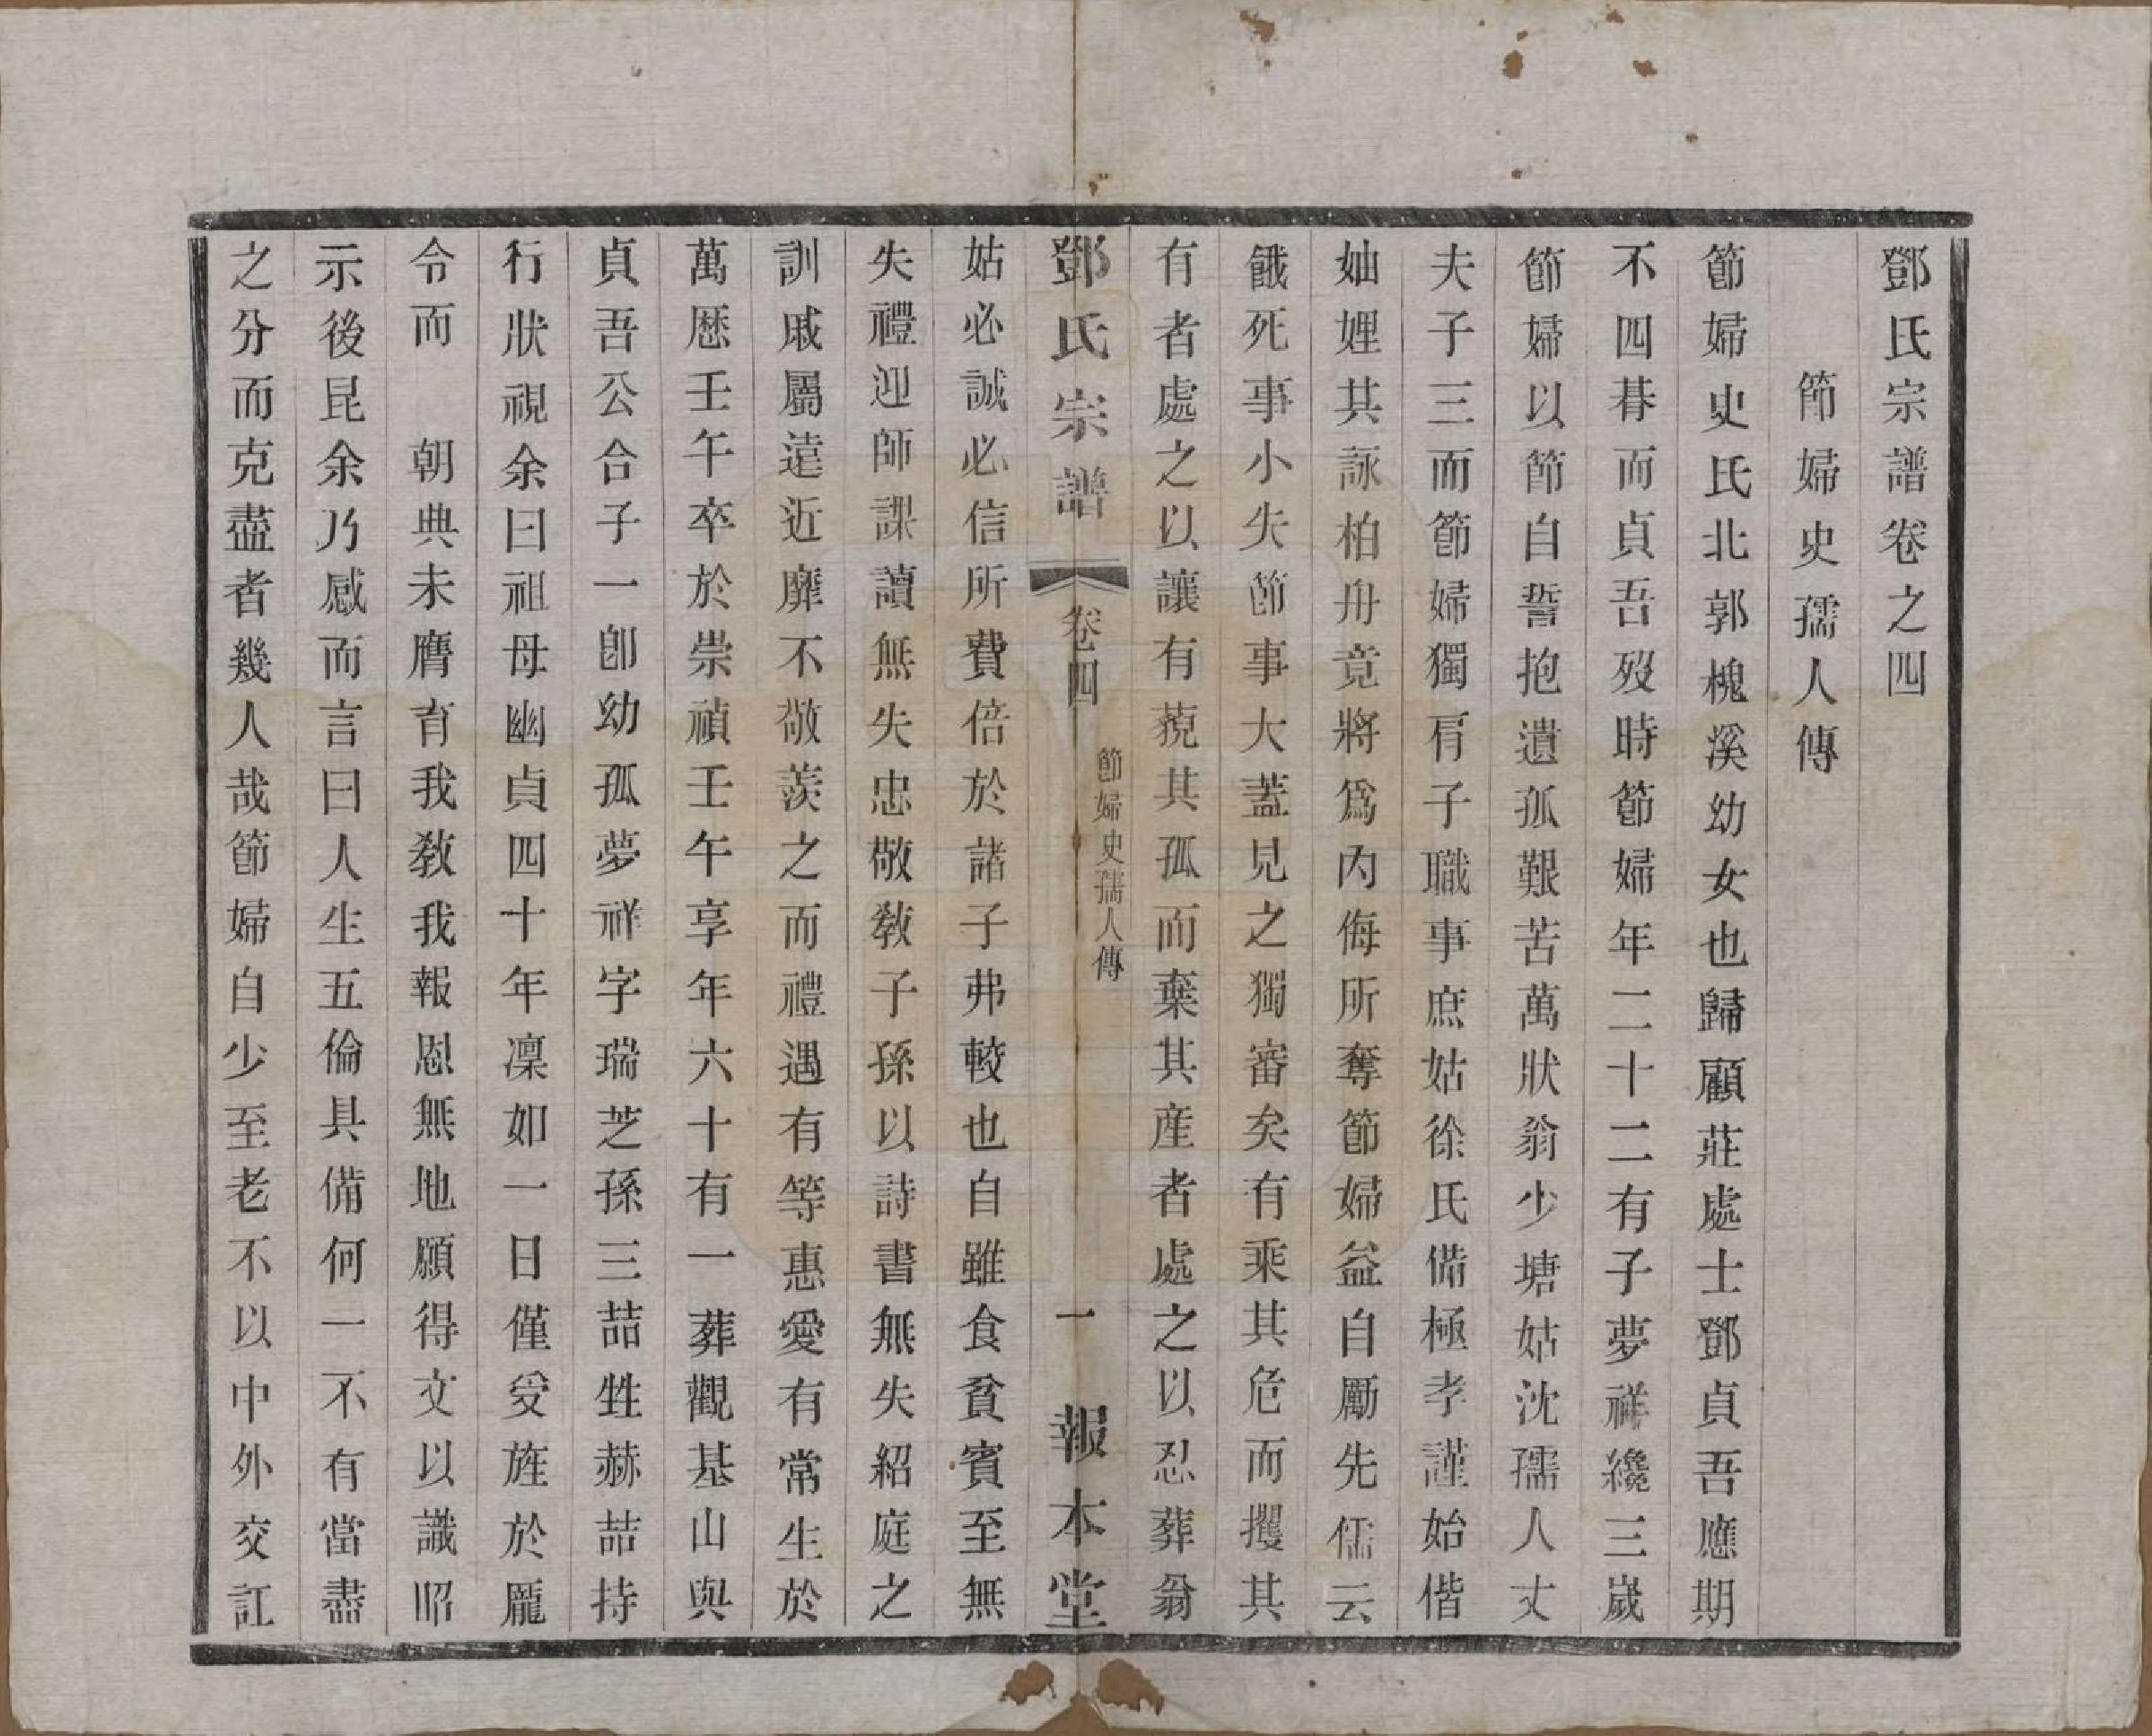 鄧氏宗譜卷之四
節婦史孺人傳
節婦史氏北郭槐溪幼女也歸顧莊處士鄧貞吾應期
不四朞而貞吾歿時節婦年二十二有子夢祥纔三歲
節婦以節自誓抱遺孤艱苦萬狀翁少塘姑沈孺人丈
夫子三而節婦獨肩子職事庶姑徐氏備極孝謹始偕
妯娌其詠柏舟竟將爲內侮所奪節婦益自勵先儒云
餓死事小失節事大蓋見之獨審矣有乘其危而攫其
有者處之以讓有藐其孤而棄其産者處之以忍葬翁
鄧氏宗譜 卷四 節婦史孺人傳 一 報本堂
姑必誠必信所費倍於諸子弗較也自雖食貧賓至無
失禮迎師課讀無失忠敬敎子孫以詩書無失紹庭之
訓戚屬遠近靡不敬羨之而禮遇有等惠愛有常生於
萬厯壬午卒於崇禎壬午享年六十有一葬觀基山與
貞吾公合子一卽幼孤夢祥字瑞芝孫三喆甡赫喆持
行狀視余曰祖母幽貞四十年凜如一日僅受旌於龐
令而　朝典未膺育我敎我報恩無地願得文以識昭
示後昆余乃感而言曰人生五倫具備何一不有當盡
之分而克盡者幾人哉節婦自少至老不以中外交訌